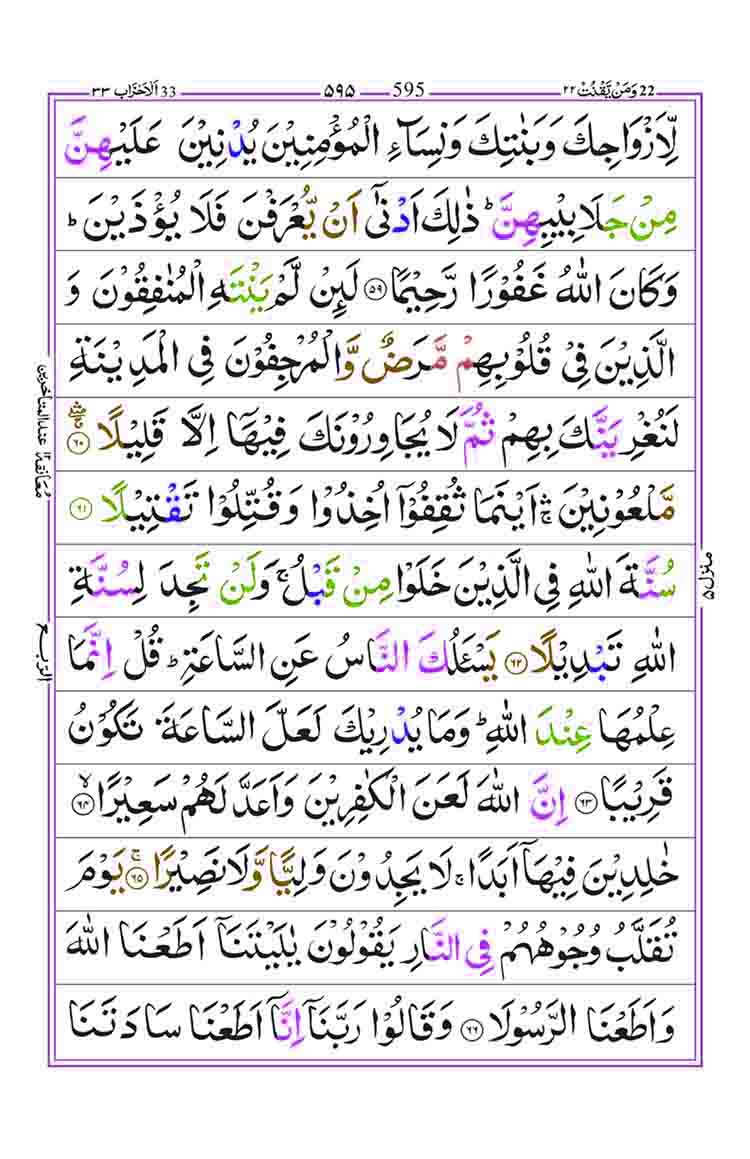 22 وَمَنْ يَّقْنُتْ ۲۲ 595 ۵۹۵ 33 اَلْاَحْزَاب ۳۳
لِّاَزْوَاجِكَ وَبَنٰتِكَ وَنِسَآءِ الْمُؤْمِنِيْنَ يُدْنِيْنَ عَلَيْهِنَّ
مِنْ جَلَابِيْبِهِنَّ ؕ ذٰلِكَ اَدْنٰۤى اَنْ يُّعْرَفْنَ فَلَا يُؤْذَيْنَ ؕ
وَكَانَ اللّٰهُ غَفُوْرًا رَّحِيْمًا ﴿۵۹﴾ لَئِنْ لَّمْ يَنْتَهِ الْمُنٰفِقُوْنَ وَ
الَّذِيْنَ فِيْ قُلُوْبِهِمْ مَّرَضٌ وَّالْمُرْجِفُوْنَ فِي الْمَدِيْنَةِ
لَنُغْرِيَنَّكَ بِهِمْ ثُمَّ لَا يُجَاوِرُوْنَكَ فِيْهَاۤ اِلَّا قَلِيْلًا ﴿۶۰﴾
مَّلْعُوْنِيْنَ ۛۚ اَيْنَمَا ثُقِفُوْۤا اُخِذُوْا وَقُتِّلُوْا تَقْتِيْلًا ﴿۶۱﴾
سُنَّةَ اللّٰهِ فِي الَّذِيْنَ خَلَوْا مِنْ قَبْلُ ۚ وَلَنْ تَجِدَ لِسُنَّةِ
اللّٰهِ تَبْدِيْلًا ﴿۶۲﴾ يَسْـَٔلُكَ النَّاسُ عَنِ السَّاعَةِ ؕ قُلْ اِنَّمَا
عِلْمُهَا عِنْدَ اللّٰهِ ؕ وَمَا يُدْرِيْكَ لَعَلَّ السَّاعَةَ تَكُوْنُ
قَرِيْبًا ﴿۶۳﴾ اِنَّ اللّٰهَ لَعَنَ الْكٰفِرِيْنَ وَاَعَدَّ لَهُمْ سَعِيْرًا ﴿۶۴﴾ ۙ
خٰلِدِيْنَ فِيْهَاۤ اَبَدًا ۚ لَا يَجِدُوْنَ وَلِيًّا وَّلَا نَصِيْرًا ﴿۶۵﴾ ۚ يَوْمَ
تُقَلَّبُ وُجُوْهُهُمْ فِي النَّارِ يَقُوْلُوْنَ يٰلَيْتَنَاۤ اَطَعْنَا اللّٰهَ
وَاَطَعْنَا الرَّسُوْلَا ﴿۶۶﴾ وَقَالُوْا رَبَّنَاۤ اِنَّاۤ اَطَعْنَا سَادَتَنَا
منزل ۵
معانقة ۱۲ عند المتاخرين
الربع